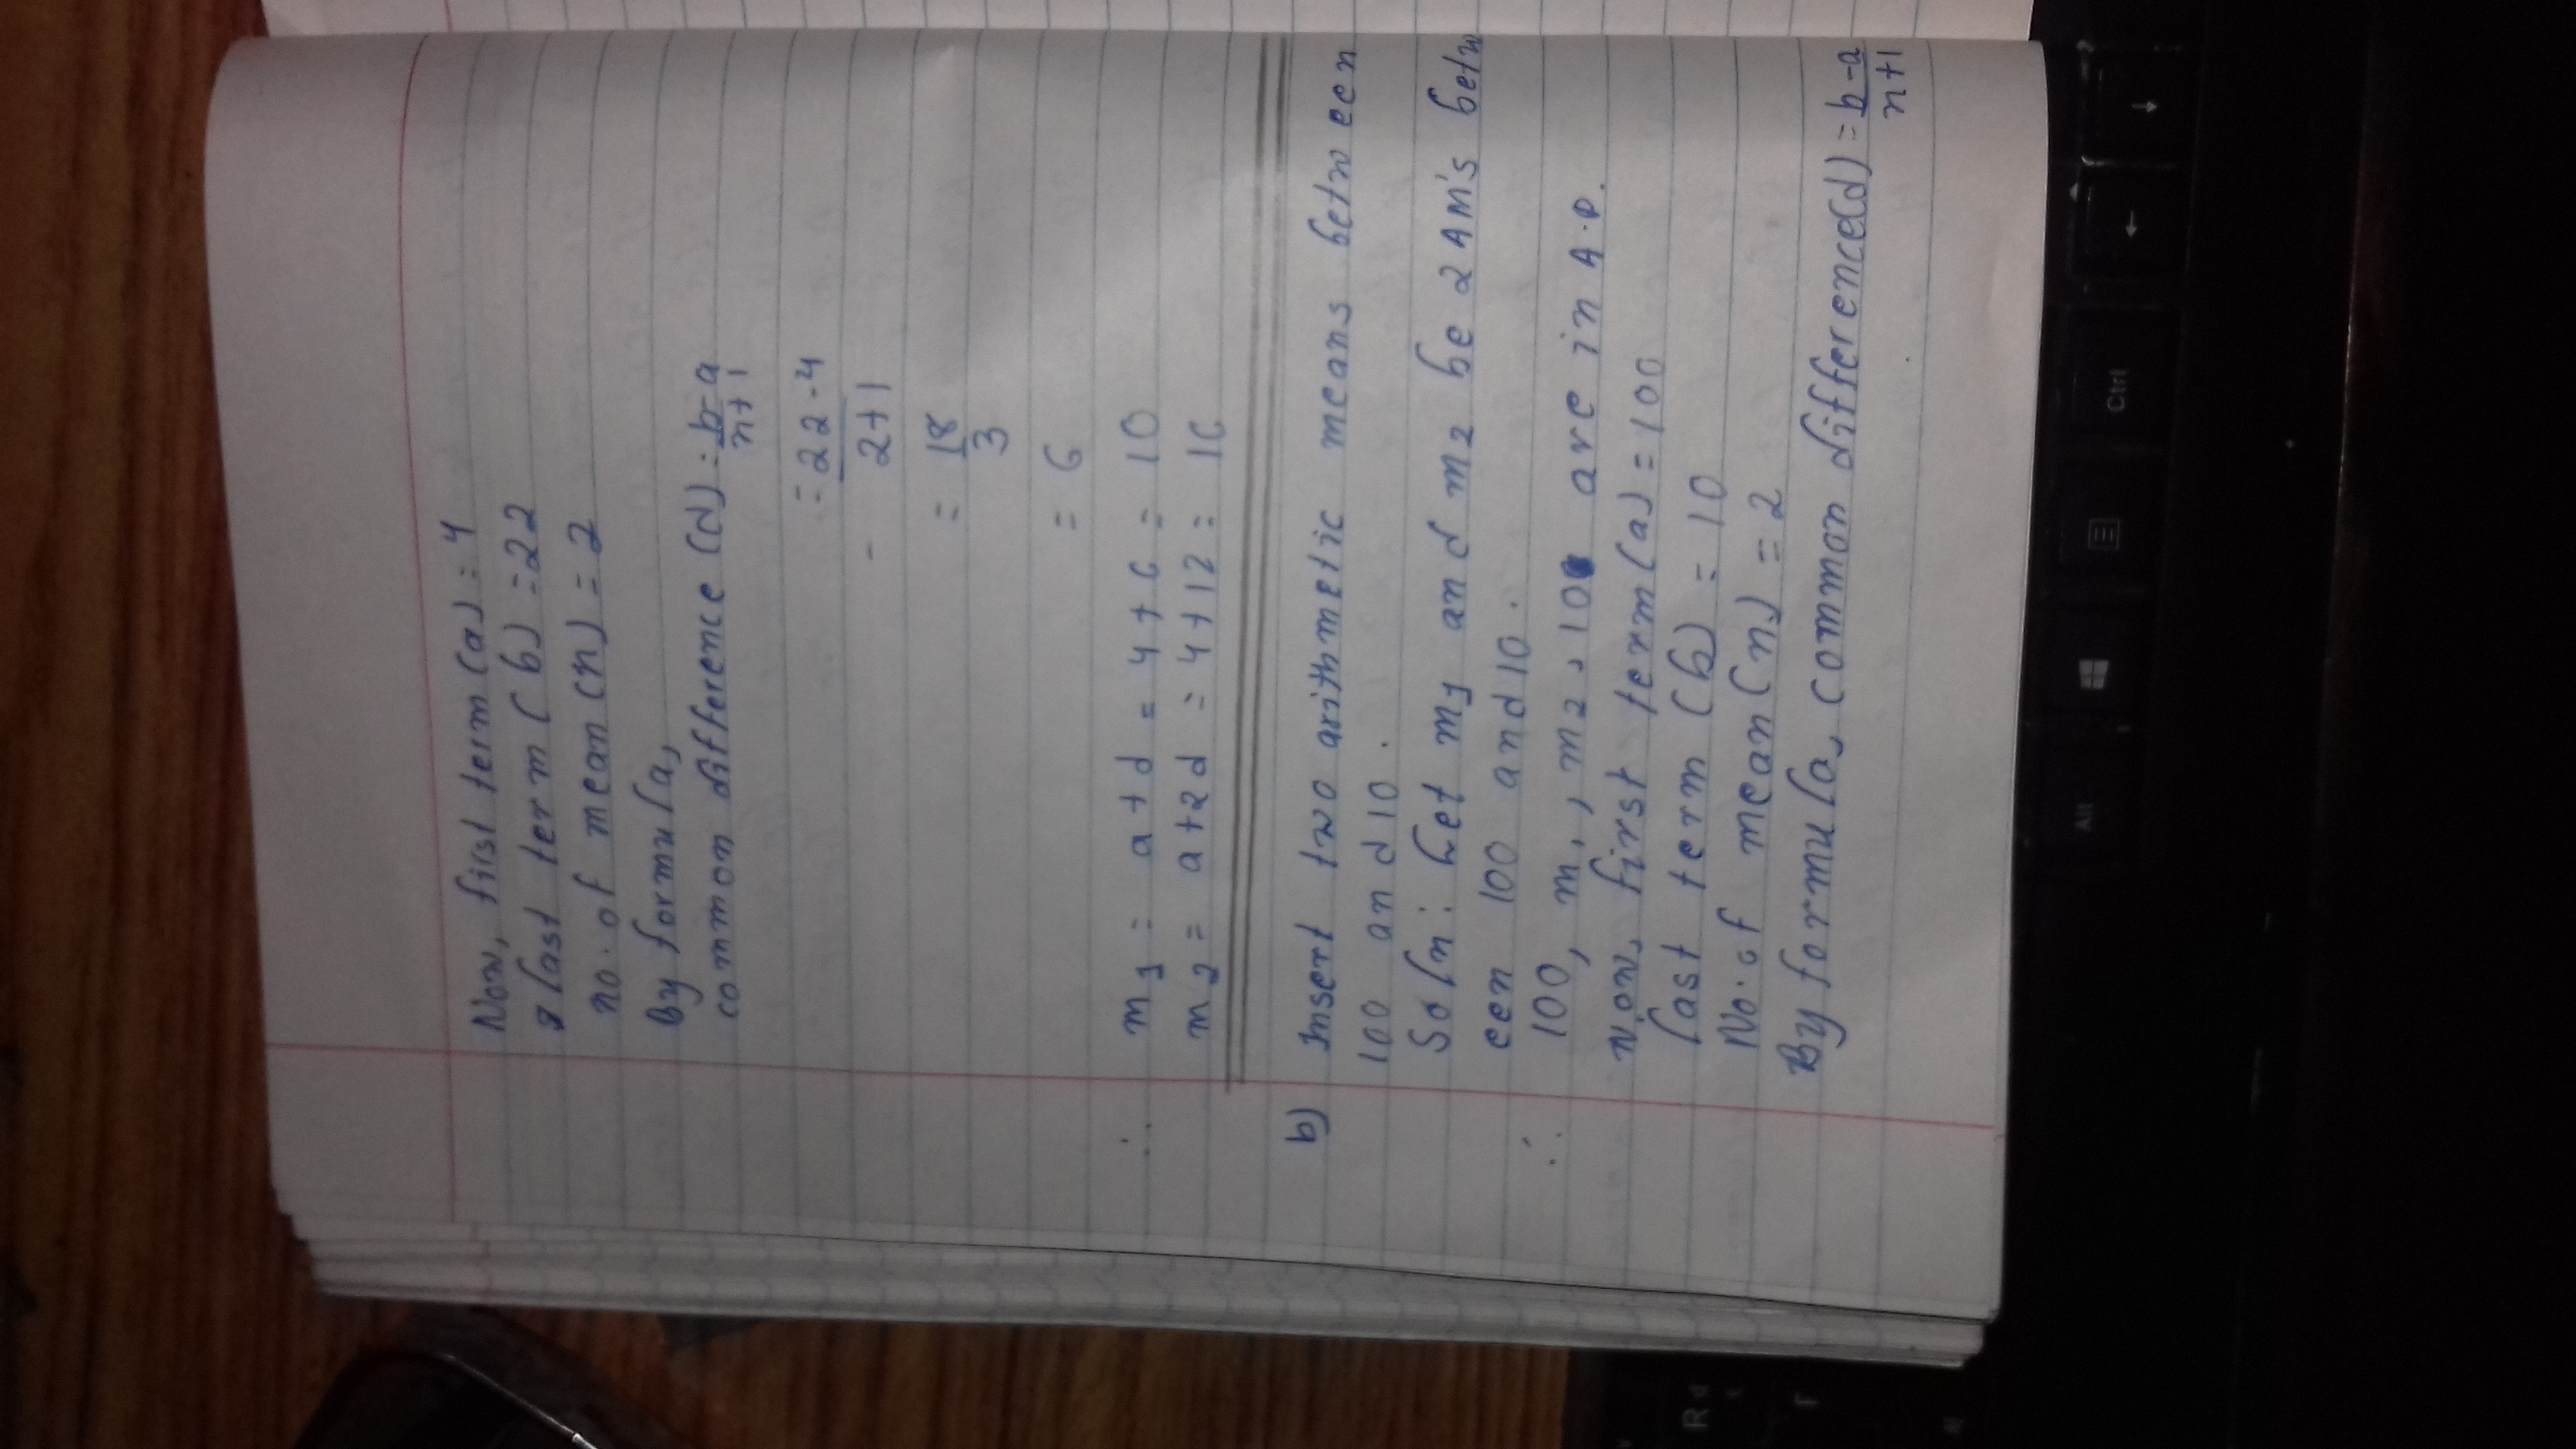 Now, first term (a) = 4
last term (b) = 22
no. of mean (n) = 2
By formula,
common difference (d) = b-a
n+1
= 22-4
2+1
= 18
3
= 6
∴ m1 = a+d = 4+6 = 10
m2 = a+2d = 4+12 = 16
b) Insert two arithmetic means between
100 and 10.
Soln: Let m1 and m2 be 2 AM's betw
een 100 and 10.
∴ 100, m1, m2, 10 are in A.P.
Now, first term (a) = 100
last term (b) = 10
No. of mean (n) = 2
By formula, common difference(d) = b-a
n+1
Alt
Ctrl
R